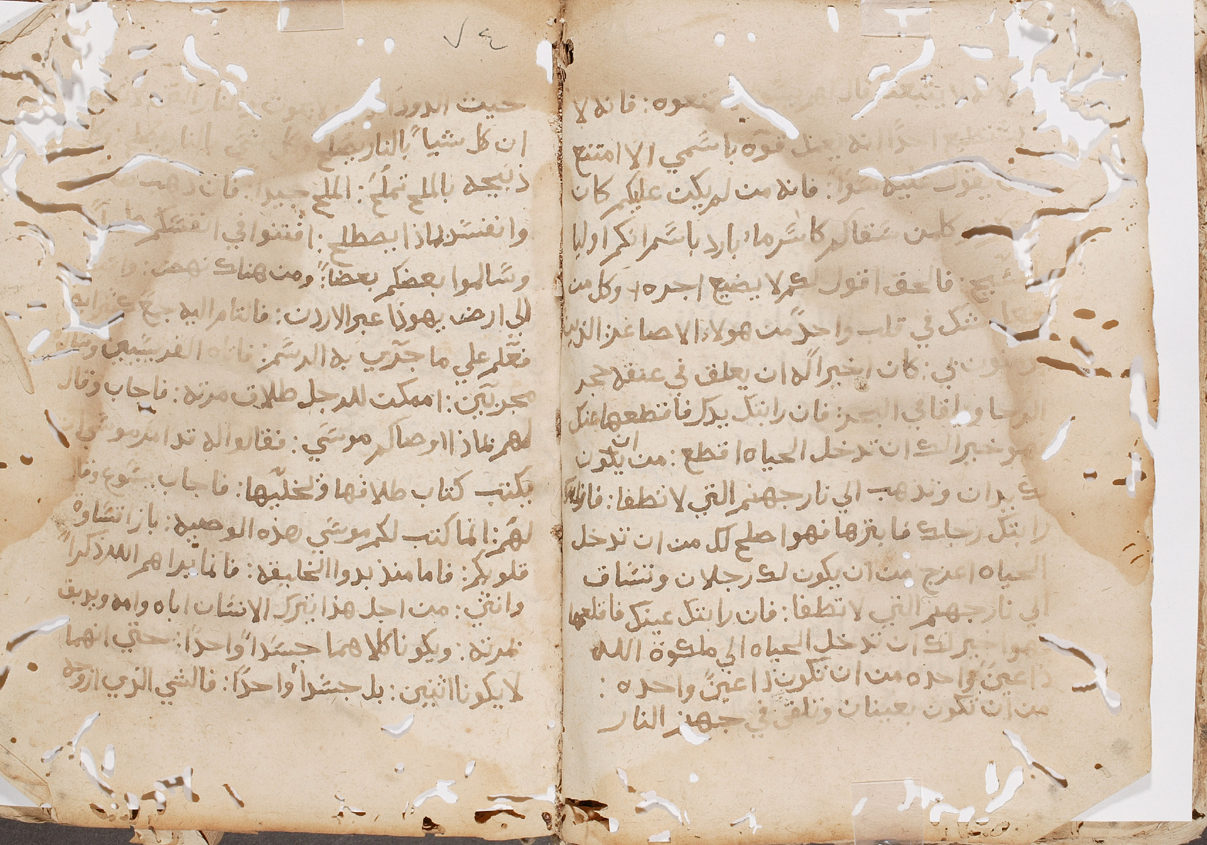 لا يتبعنا فقال لهم يسوع لا تمنعوه : فانه لا
يستطيع احدًا انه يعمل قوه باسمي الا امتنع
ان يقول فيه سوًا : فانه من لم يكن عليكم كان
ومن سقاكم كاس ماء بارد باسم انكم اوليا
المسيح : فالحق اقول لكم لا يضيع اجره وكل من
شكك في قلب واحدًا من هولاء الاصاغر الذين
يومنون بي : كان اخير له ان يعلق في عنقه حجر
الرحا ويلقا في البحر : فان رابتك يدك فاقطعها عنك
فهو خير لك ان تدخل الحياه اقطع : من ان يكون
لك يدان وتذهب الي نار جهنم التي لا تطفا : فان
رابتك رجلك فابترها فهو اصلح لك من ان تدخل
الحياه اعرج من ان يكون لك رجلان وتساق
الي نار جهنم التي لا تطفا : فان رابتك عينك فاقلعها
فهو اخير لك ان تدخل الحياه الي ملكوة الله
ذا عينً واحده من ان تكون ذا عينً واحده :
من ان تكون بعينان وتلقي في جهنم النار
٧٤
حيث الدود
ان كل شيا بالنار يصلح وكل شي
ذبيحه بالملح تملح : الملح جيدًا : فان ذهب
وانفسد لماذا يصطلح : اقتنوا في انفسكم
وسالموا بعضكم بعضا : ومن هناك نهض :
الي ارض يهوذا عبر الاردن : فالتام اليه جمع
فعلم علي ما جري به الرسم : فاتاه الفريسيين وسال
مجربين : ايمكن للرجل طلاق مرته : فاجاب وقال
لهم لماذا اوصاكم موسي : فقالوا له قد امر موسي
بكتب كتاب طلاقها ونخليها : فاجاب يسوع وقال
لهم : انما كتب لكم موسي هذه الوصيه : باز اقساوة
قلوبكم : فاما منذ بدوا الخليقه : فانما براهم الله ذكرًا
وانثي : من اجل هذا يترك الانسان اباه وامه ويريف
لمرته : ويكونا كلاهما جسدًا واحدًا : حتي انهما
لا يكونا اثنين : بل جسدًا واحدًا : فالشي الذي ازوجه